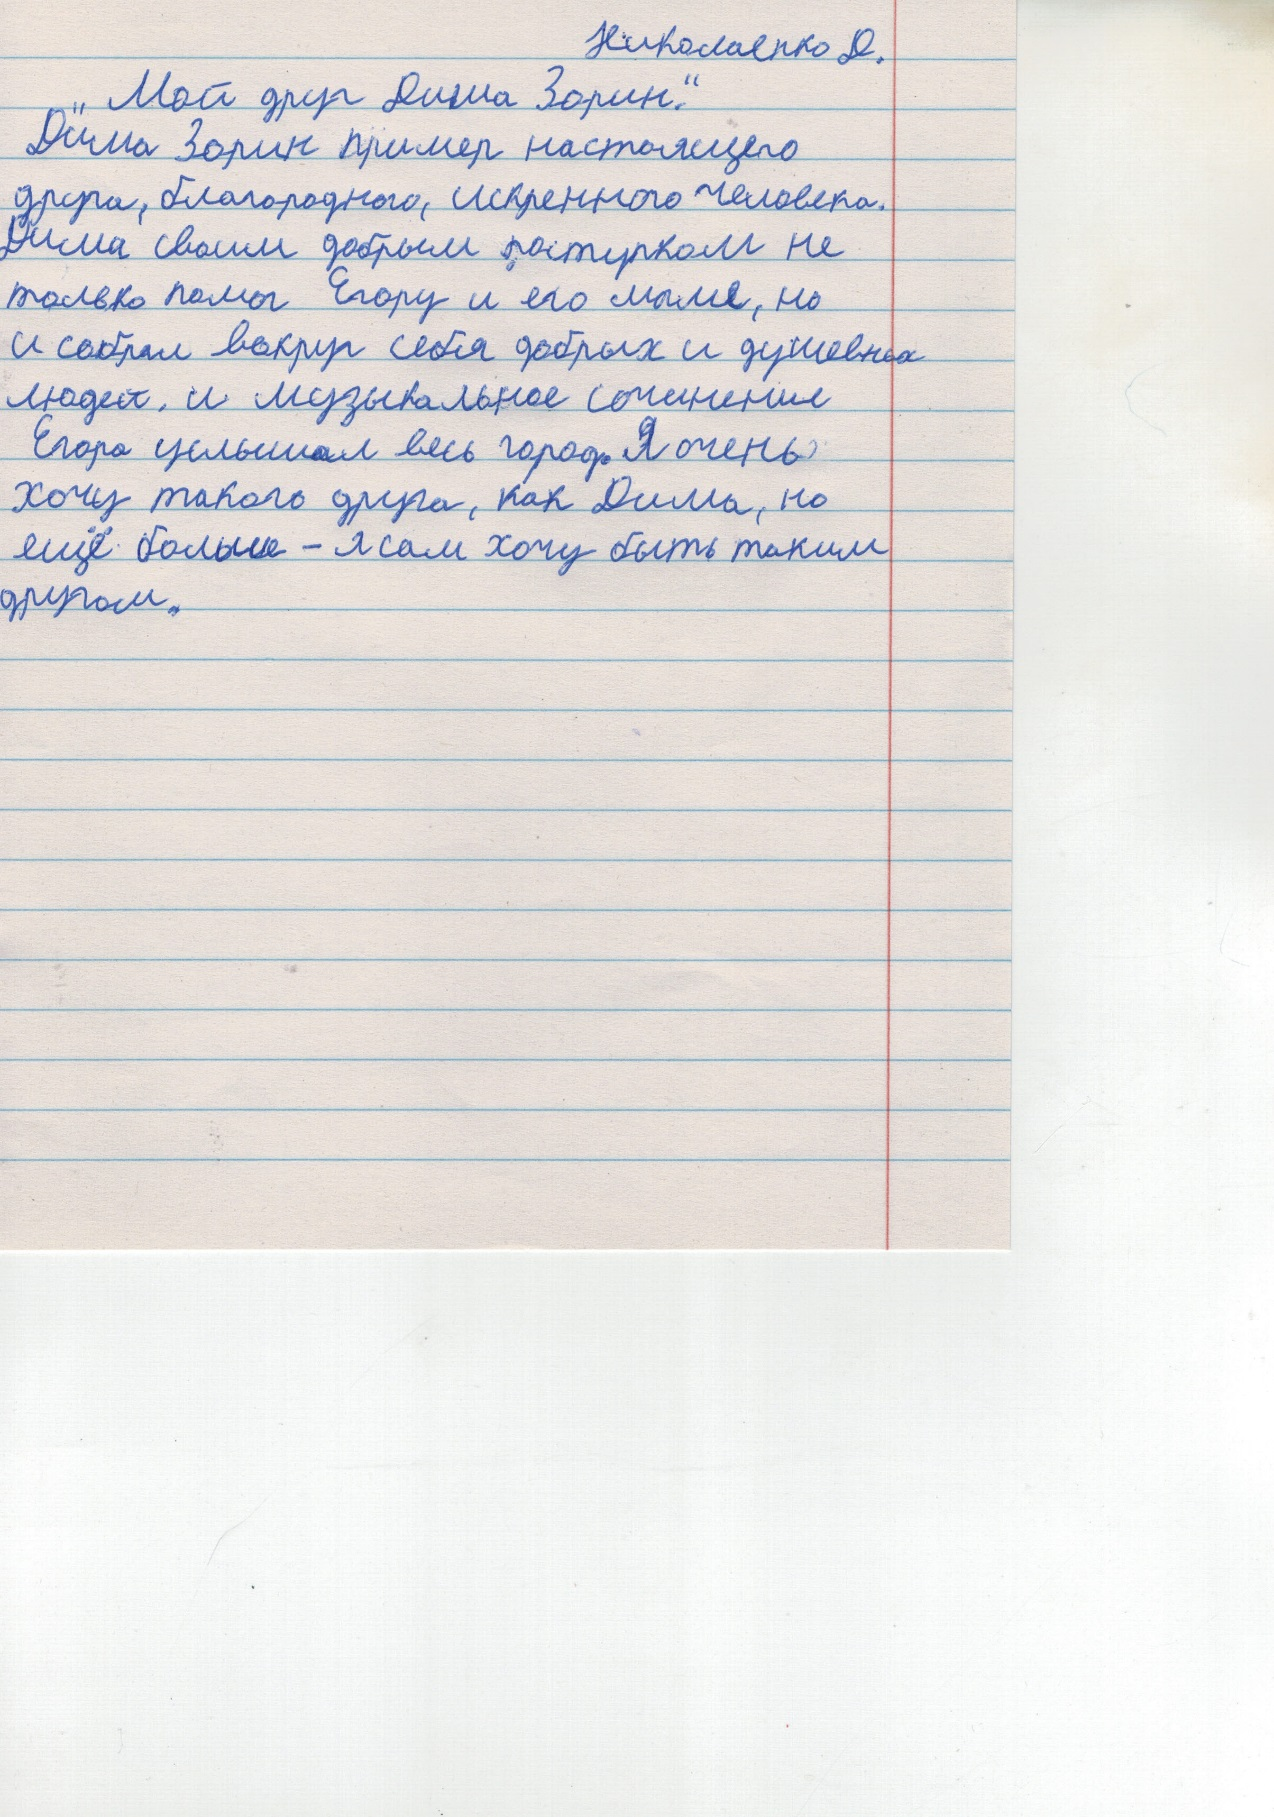 Николаенко Д.
„Мой друг Дима Зорин."
Дима Зорин пример настоящего
друга, благородного, искренного человека.
Дима своим добрым поступком не
только помог Егору и его маме, но
и собрал вокруг себя добрых и душевных
людей. и музыкальное сочинение
Егора услышал весь город. Я очень
хочу такого друга, как Дима, но
ещё больше – я сам хочу быть таким
другом.